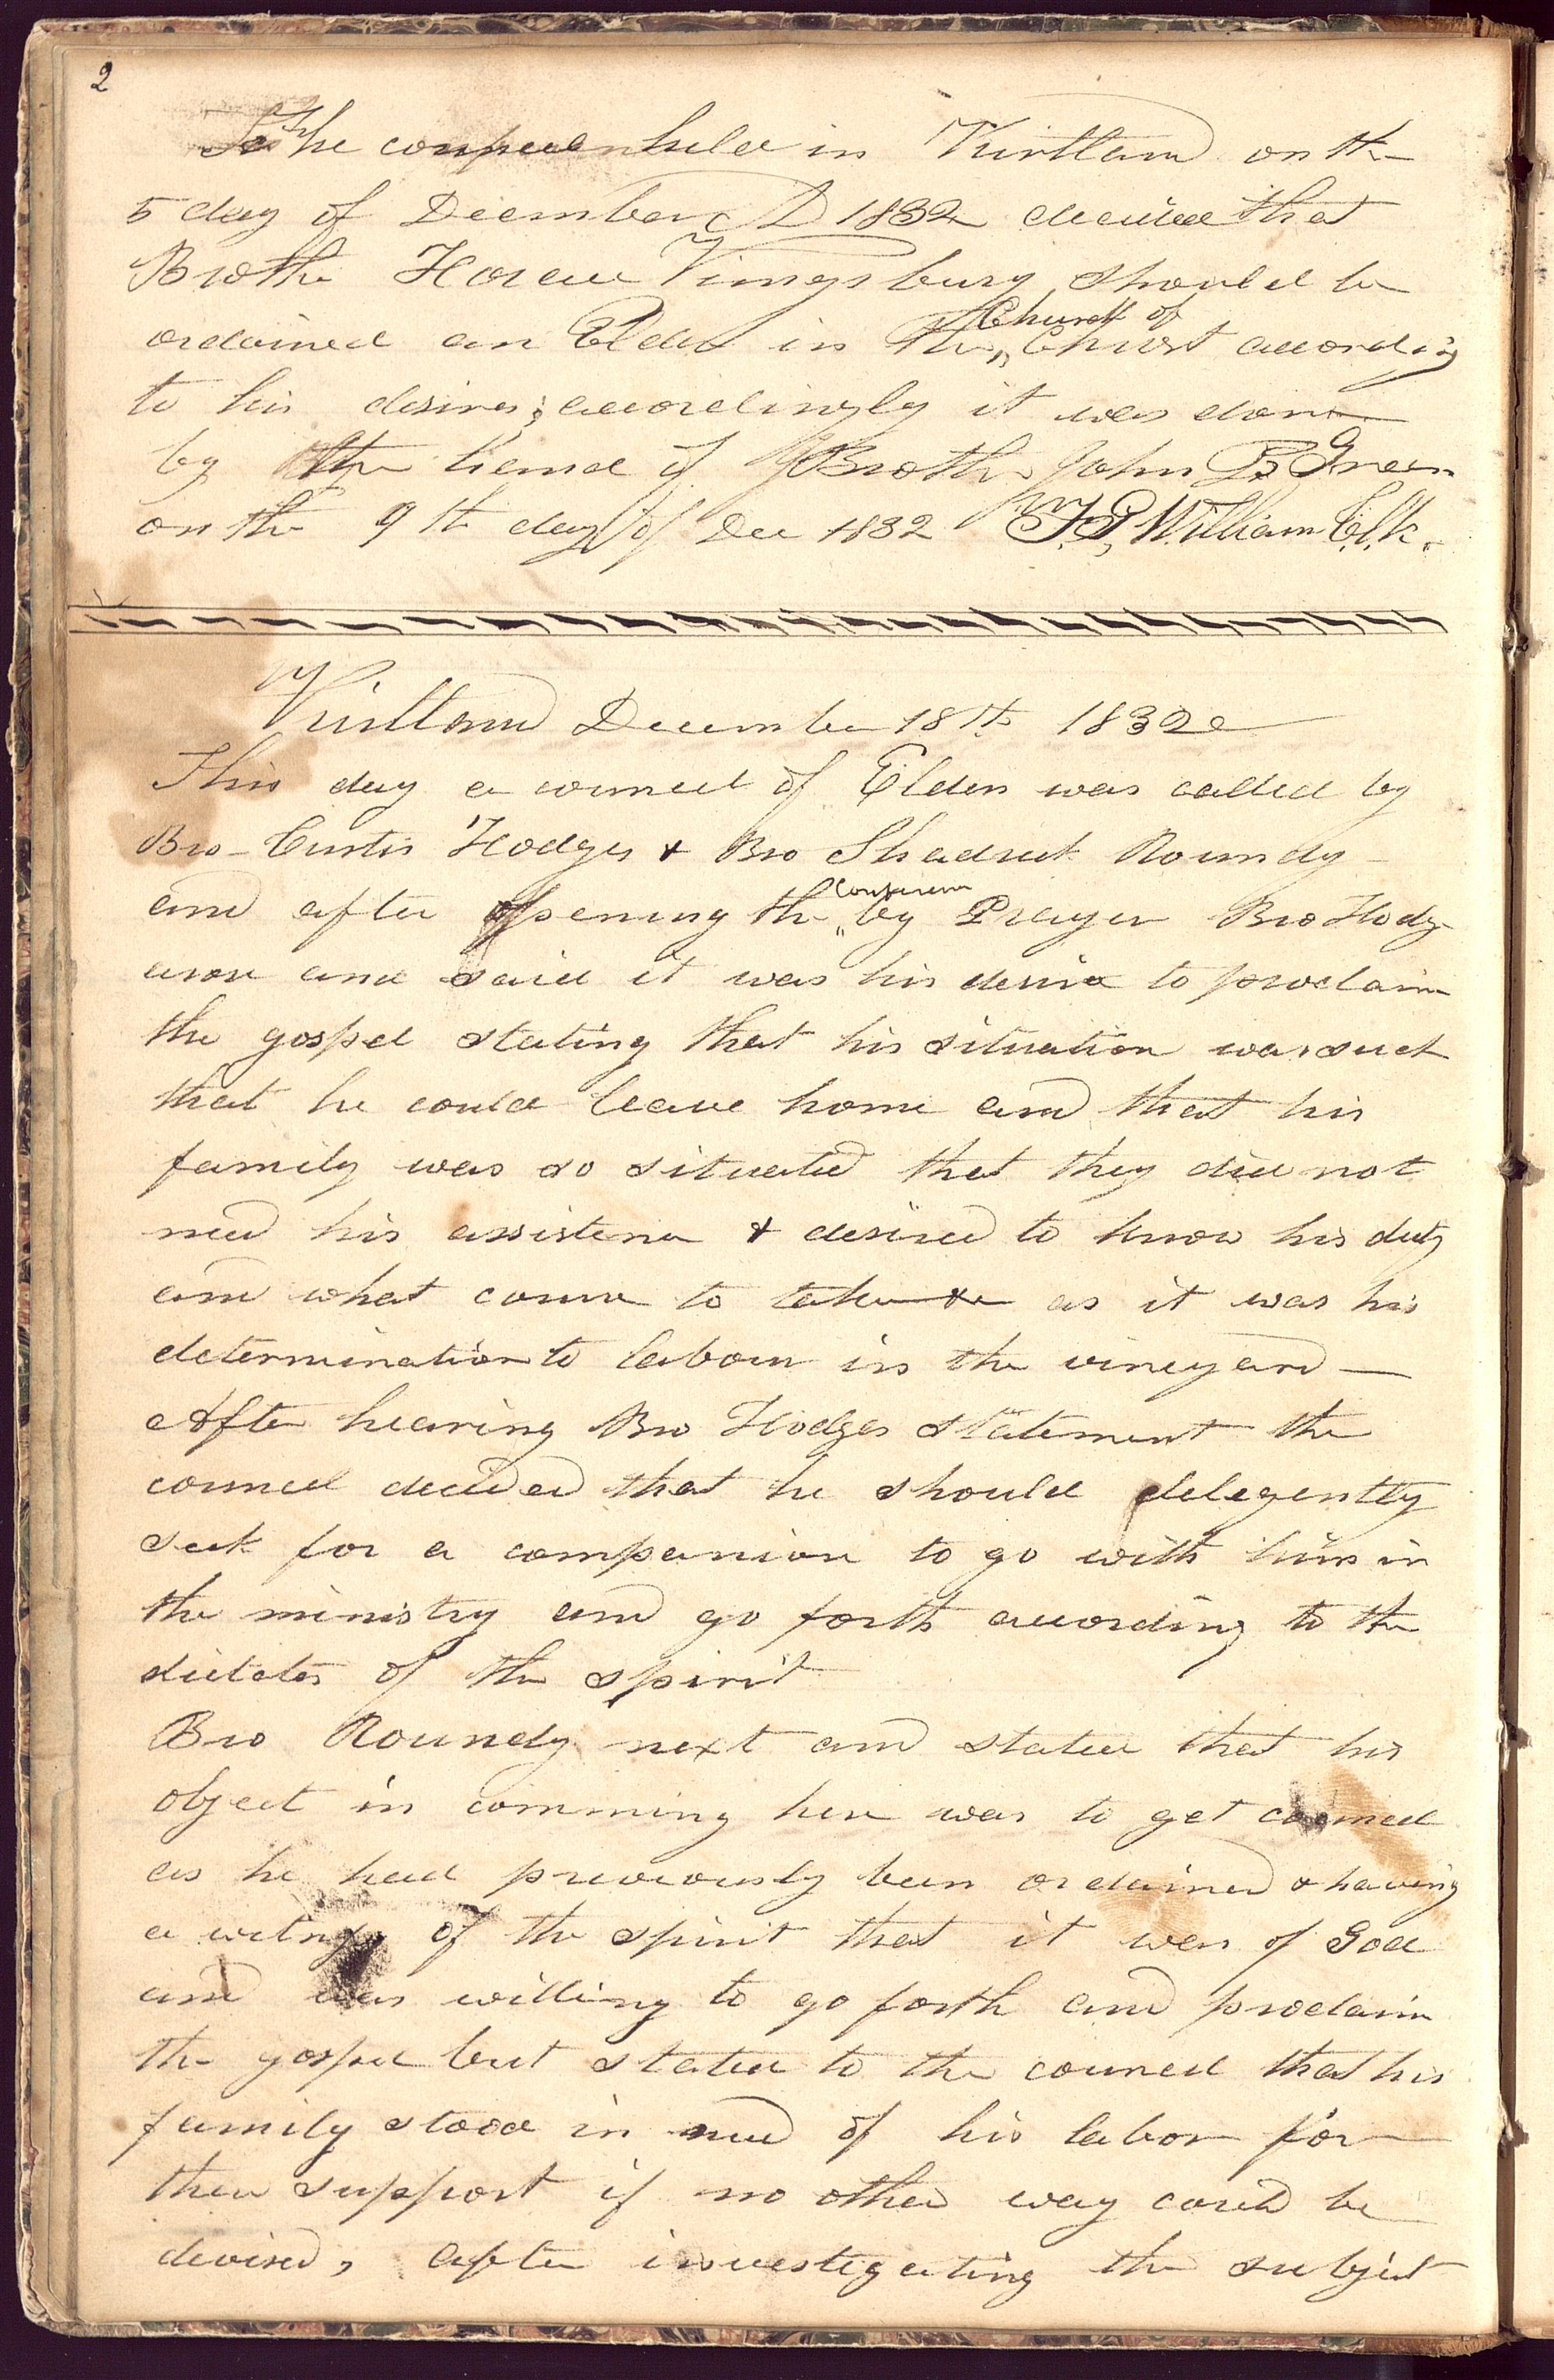 2
The conference held in Kirtland on the
5 day of December AD 1832 decided that
Brother Horace Kingsbury should be
ordained an Elder in the Church of Christ according
to his desires; accordingly it was done
by the hand of Brother John P Green
on the 9th day of Dec 1832 F. G. William Clk.
Kirtland December 18th 1832
This day a councel of Elders was called by
Bro- Curtis Hodges & Bro Shadrick Roundy
and after opening the Conference by Prayer Bro Hodg
arose and said it was his desire to proclaim
the gospel stating that his situation was such
that he could leave home and that his
family was so situated that they did not
need his assistence & desired to know his duty
and what course to take as it was his
determination to labour in the vineyard —
After hearing Bro Hodges statement the
councel decided that he should delegently
seek for a companion to go with him in
the ministry and go forth according to the
dictates of the spirit
Bro Roundy next and stated that his
object in comming here was to get councel
as he had previously been ordained & having
a witness of the spirit that it was of God
and was willing to go forth and proclaim
the gospel but stated to the councel that his
family stood in need of his labor for
their support if no other way could be
devised, after investigating the subject